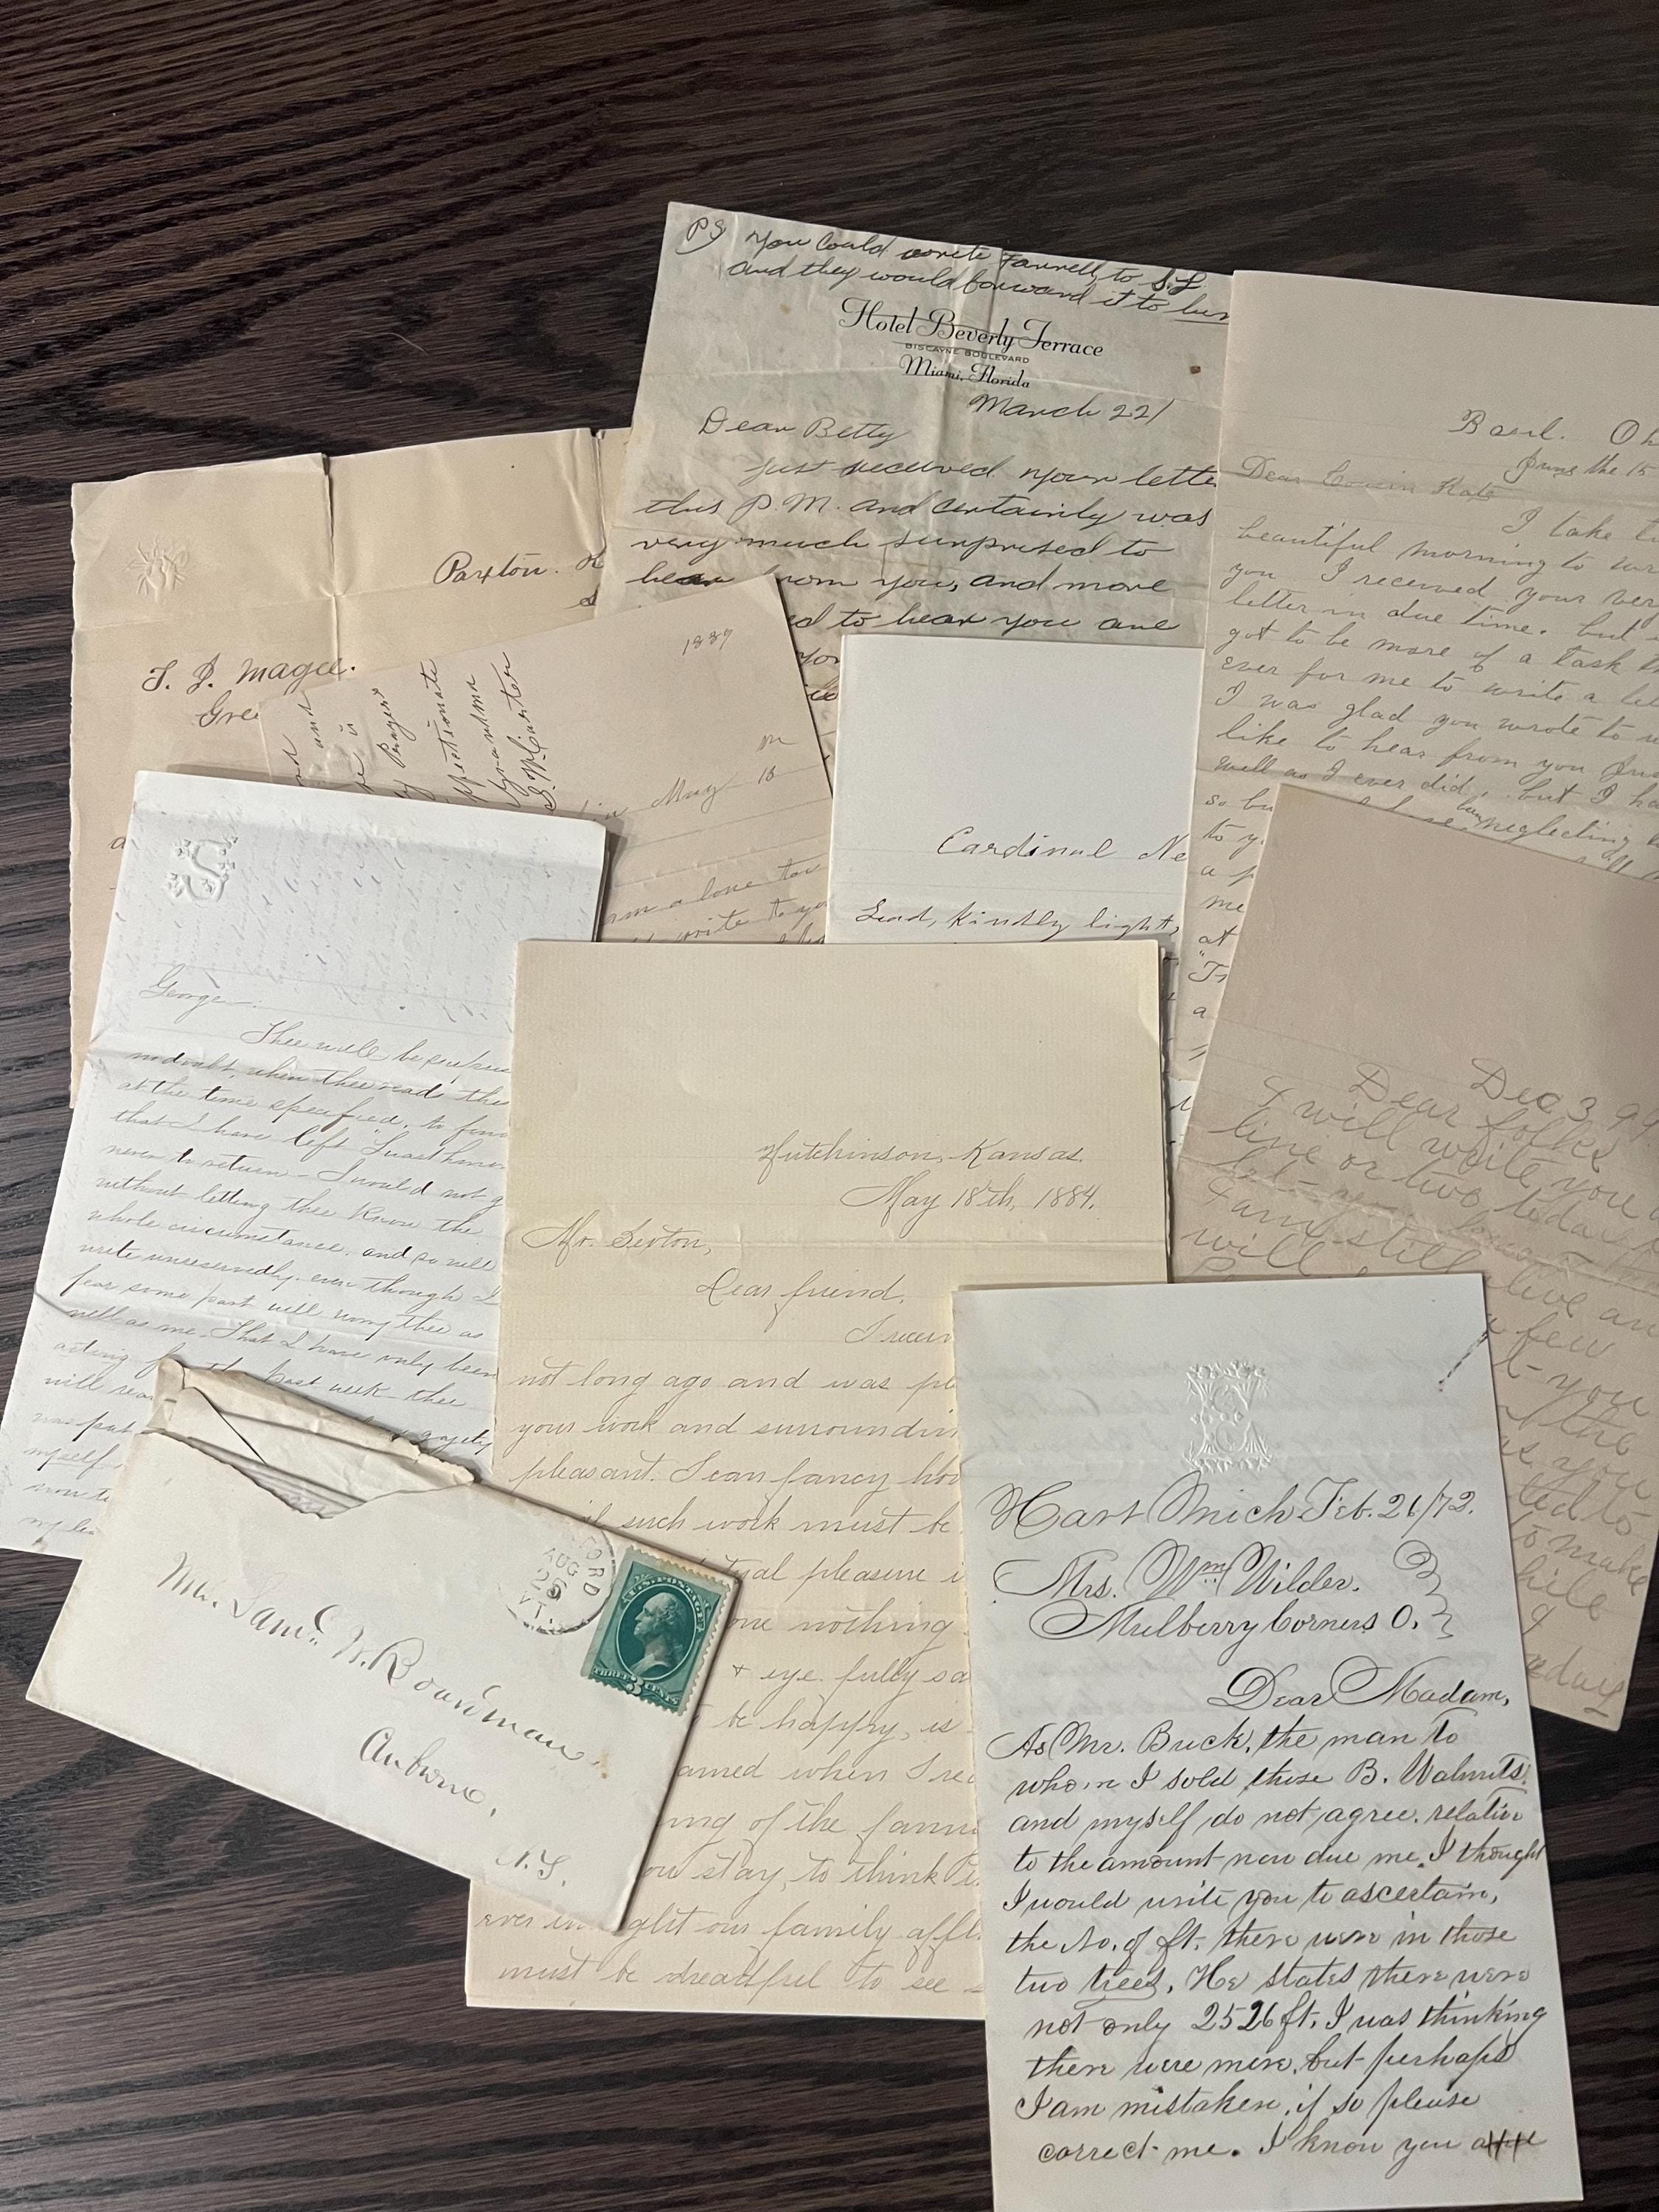 PS you could write Farrell, to S.L.
and they would forward it to him
Hotel Beverly Terrace
BISCAYNE BOULEVARD
Miami, Florida
March 22/
Dear Betty
just received your lette
this P.M. and certainly was
very much surprised to
hear from you, and more
ed to hear you are
you
Basil. Oh
June the 15
Dear Cousin Kate
I take t
beautiful morning to wr
you I received your ver
letter in due time. but
got to be more of a task th
ever for me to write a let
I was glad you wrote to
like to hear from you Jus
well as I ever did, but I ha
so bu
been neglecting
to y
a p
me
at
a
Paxton. K
T. J. Magee.
Gre
and
is
Prayers
affectionate
Grandma
S. W. Carter
1887
May 18
am a lone
write to yo
Cardinal Ne
Lead, kindly light,
S
George:
Thee will be surpris
no doubt, when thee reads this
at the time specified, to find
that I have left
never to return — I would not g
without letting thee know the
whole circumstance, and so will
write unreservedly, even though I
fear some part will wrong thee as
well as me. That I have only been
acting for the past week thee
will
was past gayety
myself
now to
Hutchinson, Kansas.
May 18th, 1884.
Mr. Sexton,
Dear friend,
I receiv
not long ago and was pl
your work and surroundin
pleasant. I can fancy ho
such work must be
ual pleasure i
me nothing
+ eye fully sa
be happy, is
amed when I rec
ing of the farm
ou stay, to think
ever in ght our family affl
must be dreadful to see
Dec 3 99
Dear folks
I will write you a
line or two today
let you know
I am still alive an
will few
you
the
as you
ted to
to make
hile
I
nday
BEDFORD
AUG
VT.
U.S. POSTAGE
THREE 3 CENTS
Mr. Saml. W. Boardman,
Auburn,
N.Y.
Hart Mich Feb. 26/72.
Mrs. Wm Wilder.
Mulberry Corners O.
Dear Madam,
As Mr. Buck, the man to
whom I sold those B. Walnuts
and myself do not agree, relative
to the amount now due me, I thought
I would write you to ascertain,
the No. of ft. there were in those
two trees. He states there were
not only 2526 ft. I was thinking
there were more, but perhaps
I am mistaken, if so please
correct me. I know you